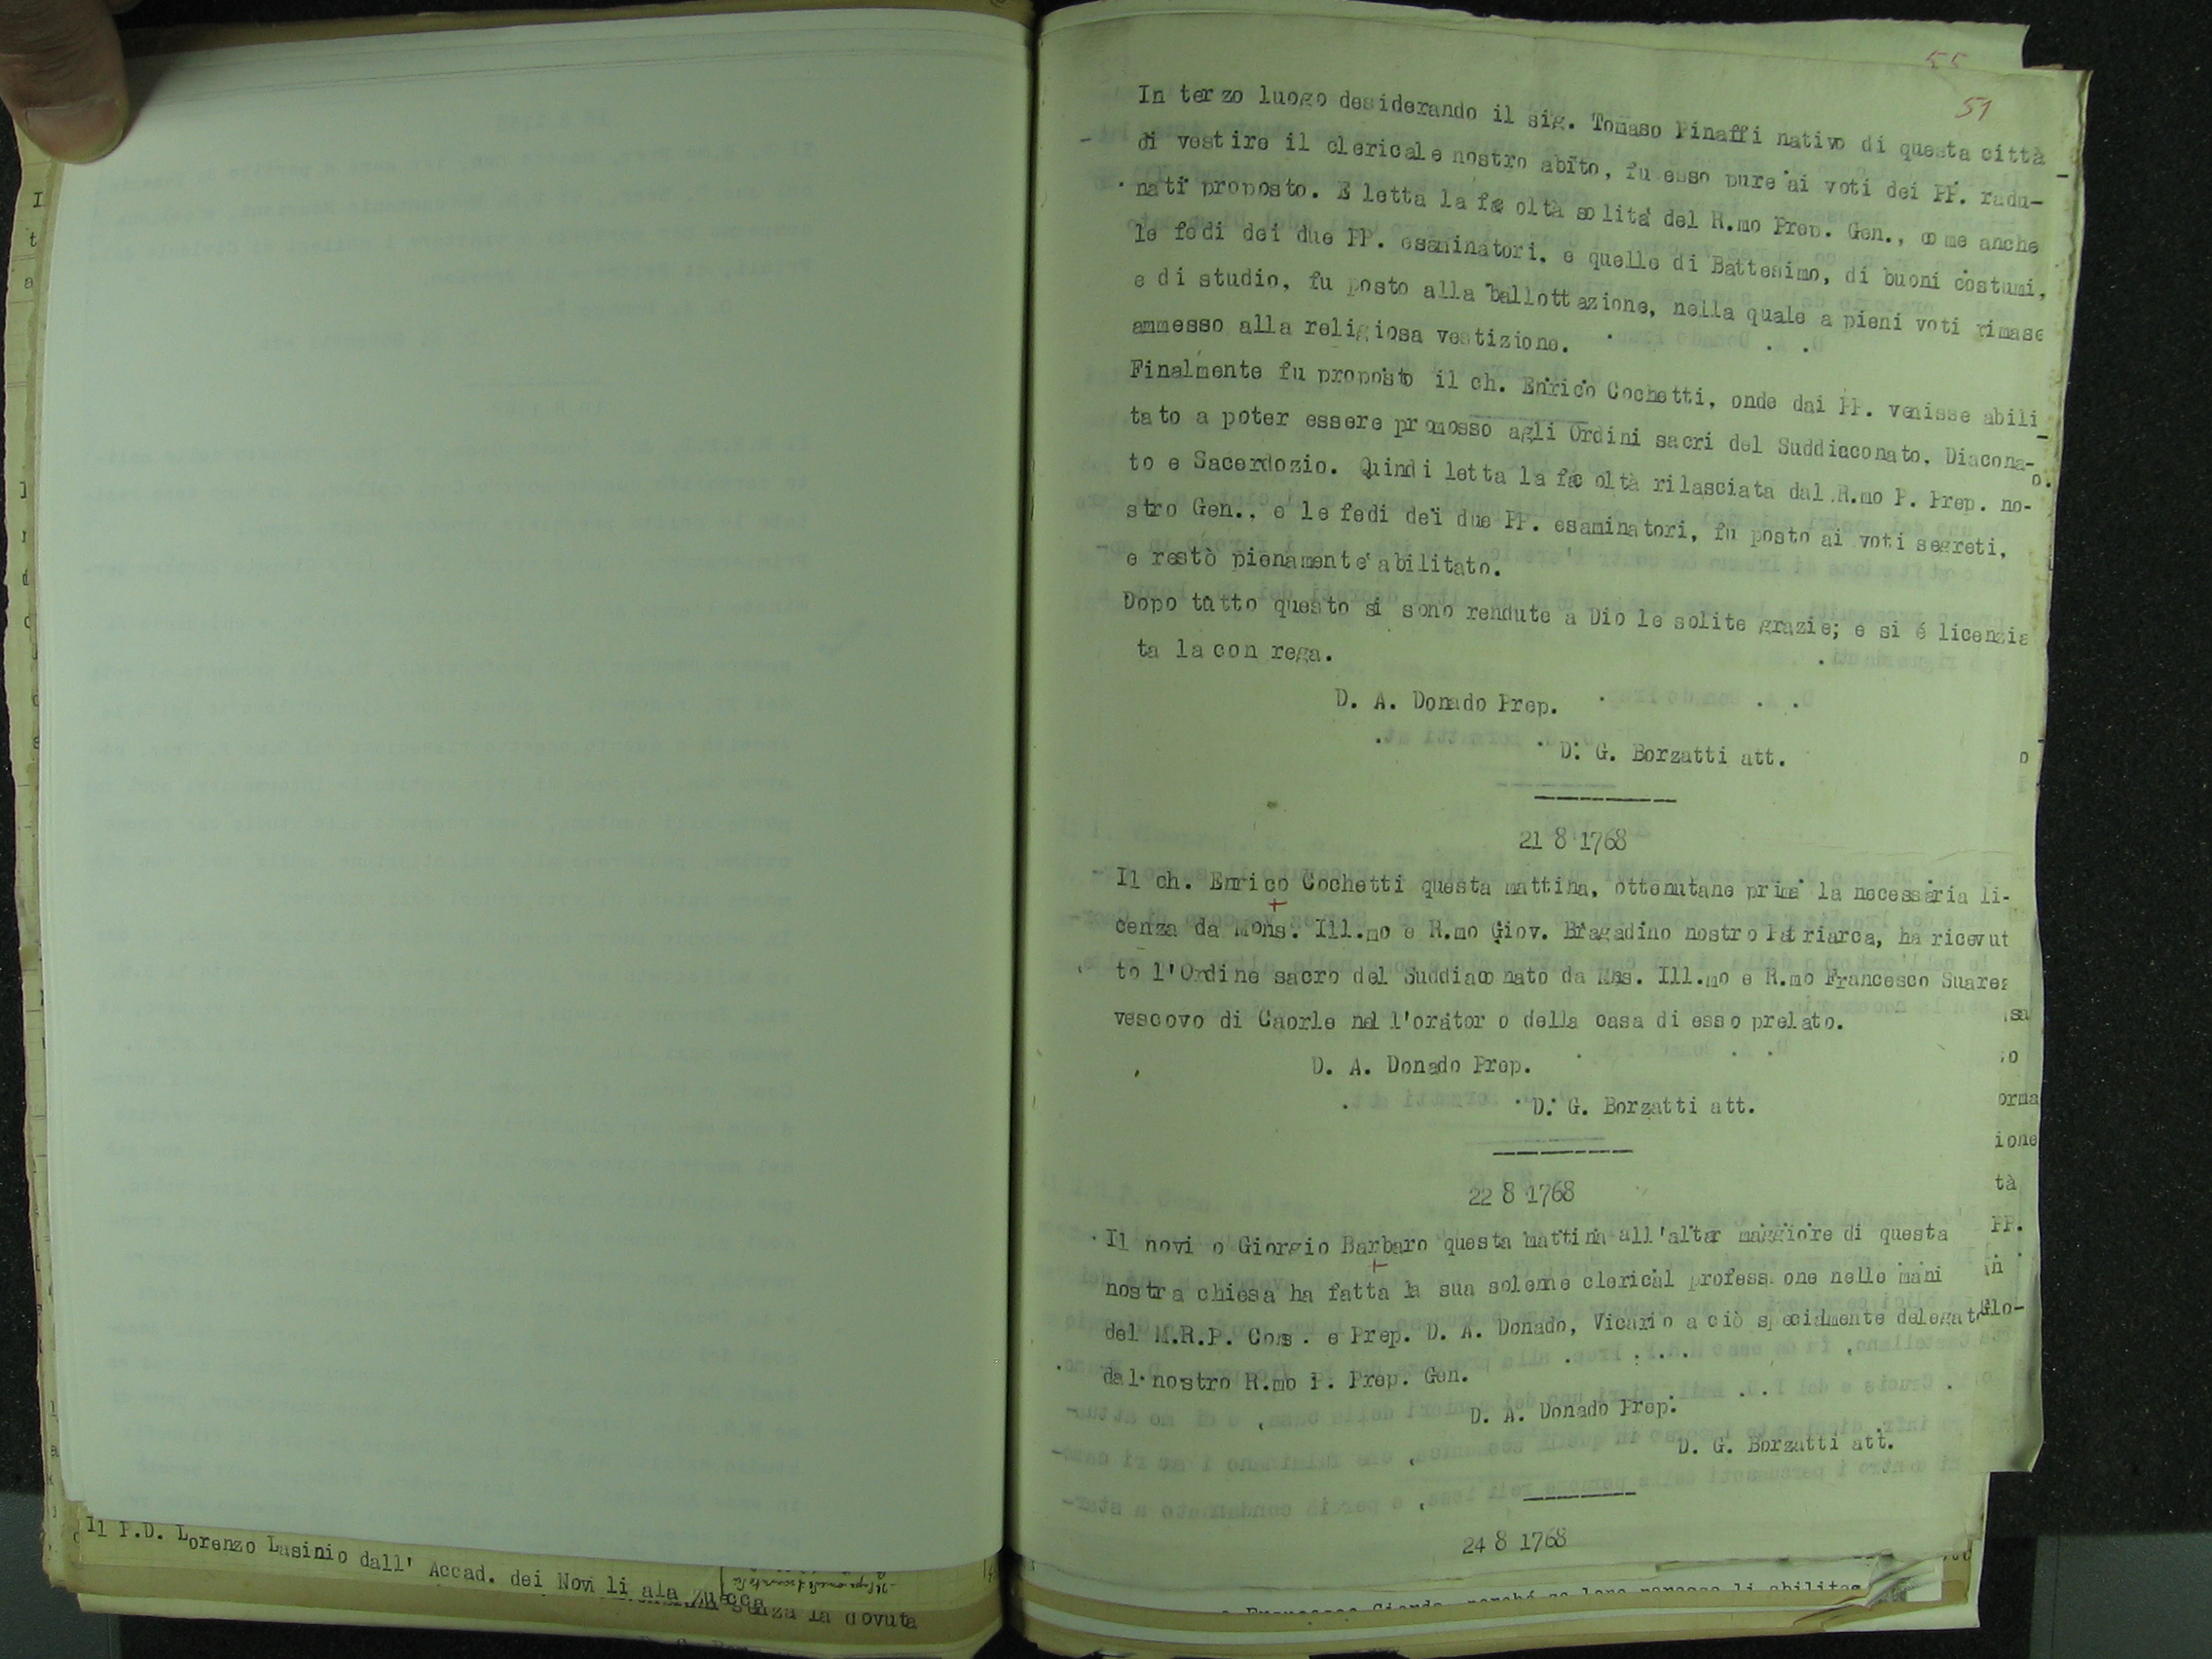 55
51
In terzo luogo desiderando il sig. Tomaso Pinaffi nativo di questa città
di vestire il clericale nostro abito, fu esso pure ai voti dei PP. radu-
nati proposto. E letta la fac oltà solita del R.mo Prep. Gen., come anche
le fedi dei due PP. esaminatori, e quelle di Battesimo, di buoni costumi,
e di studio, fu posto alla ballottazione, nella quale a pieni voti rimase
ammesso alla religiosa vestizione.
Finalmente fu proposto il ch. Enrico Cochetti, onde dai PP. venisse abili_
tato a poter essere promosso agli Ordini sacri del Suddiaconato, Diacona-
to e Sacerdozio. Quindi letta la fac oltà rilasciata dal R.mo P. Prep. no-
stro Gen., e le fedi dei due PP. esaminatori, fu posto ai voti segreti,
e restò pienamente abilitato.
Dopo tutto questo si sono rendute a Dio le solite grazie; e si é licenzia
ta la con rega.
D. A. Donado Prep.
D. G. Borzatti att.
21 8 1768
Il ch. Enrico Cochetti questa mattina, ottenutane prima la necessaria li-
cenza da Mons. Ill.mo e R.mo Giov. Bragadino nostro Patriarca, ha ricevut
to l'Ordine sacro del Suddiaconato da Mns. Ill.mo e R.mo Francesco Suarez
vescovo di Caorle nel l'orator o della casa di esso prelato.
D. A. Donado Prep.
D. G. Borzatti att.
22 8 1768
Il novi o Giorgio Barbaro questa mattina all'altar maggiore di questa
nostra chiesa ha fatta la sua solenne clerical profess one nelle mani
del M.R.P. Cons. e Prep. D. A. Donado, Vicario a ciò specialmente delegato
dal nostro R.mo P. Prep. Gen.
D. A. Donado Prep.
D. G. Borzatti att.
24 8 1768
Il P.D. Lorenzo Lasinio dall' Accad. dei Novi li ala Zuecca
senza la dovuta